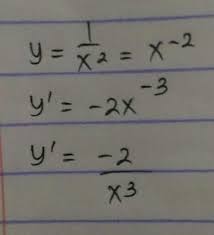 y = 1/x² = x⁻²
y' = -2x⁻³
y' = -2/x³